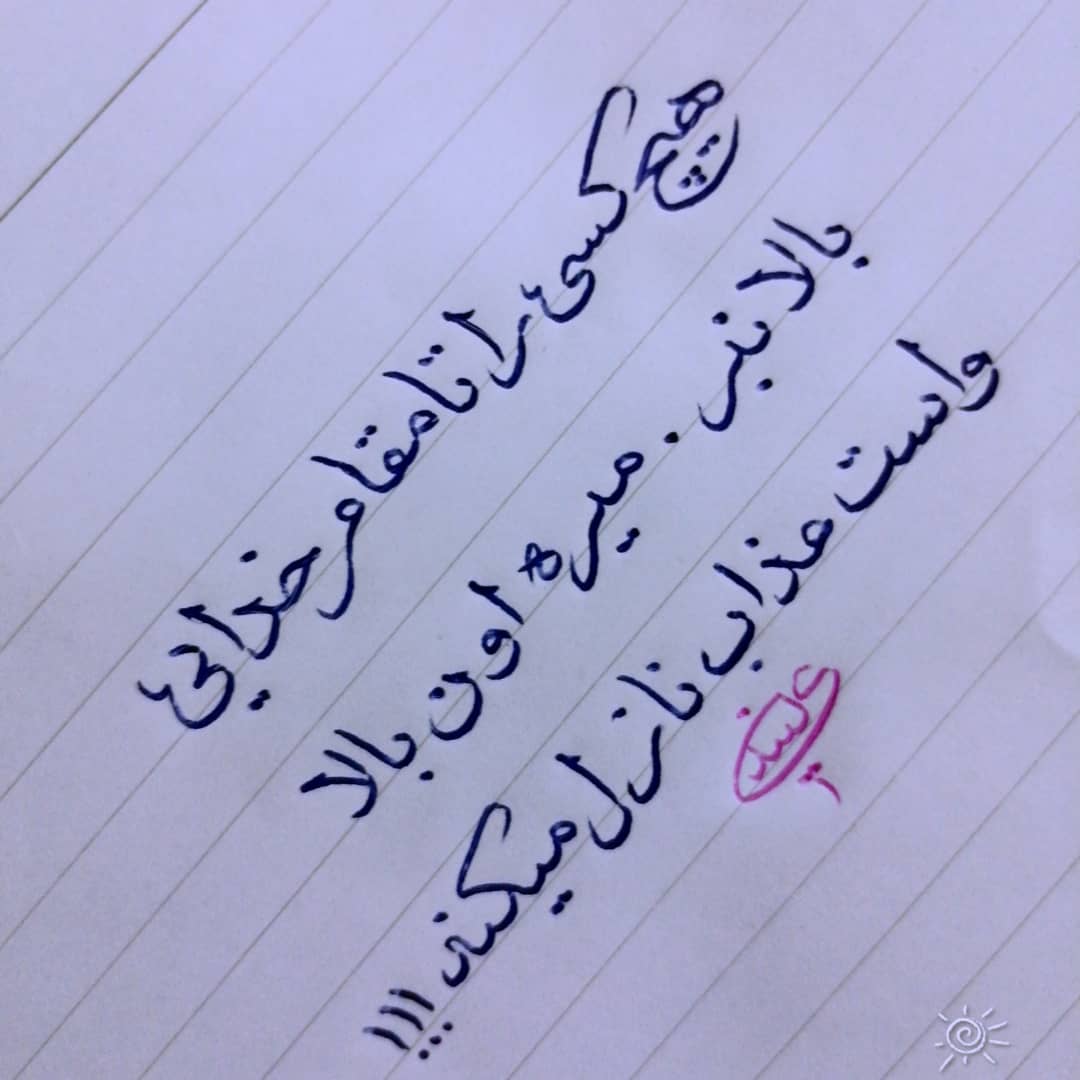 هیچ کسی را تا مقام خدایی
بالا نبر . میره اون بالا
واست عذاب نازل میکند !!!